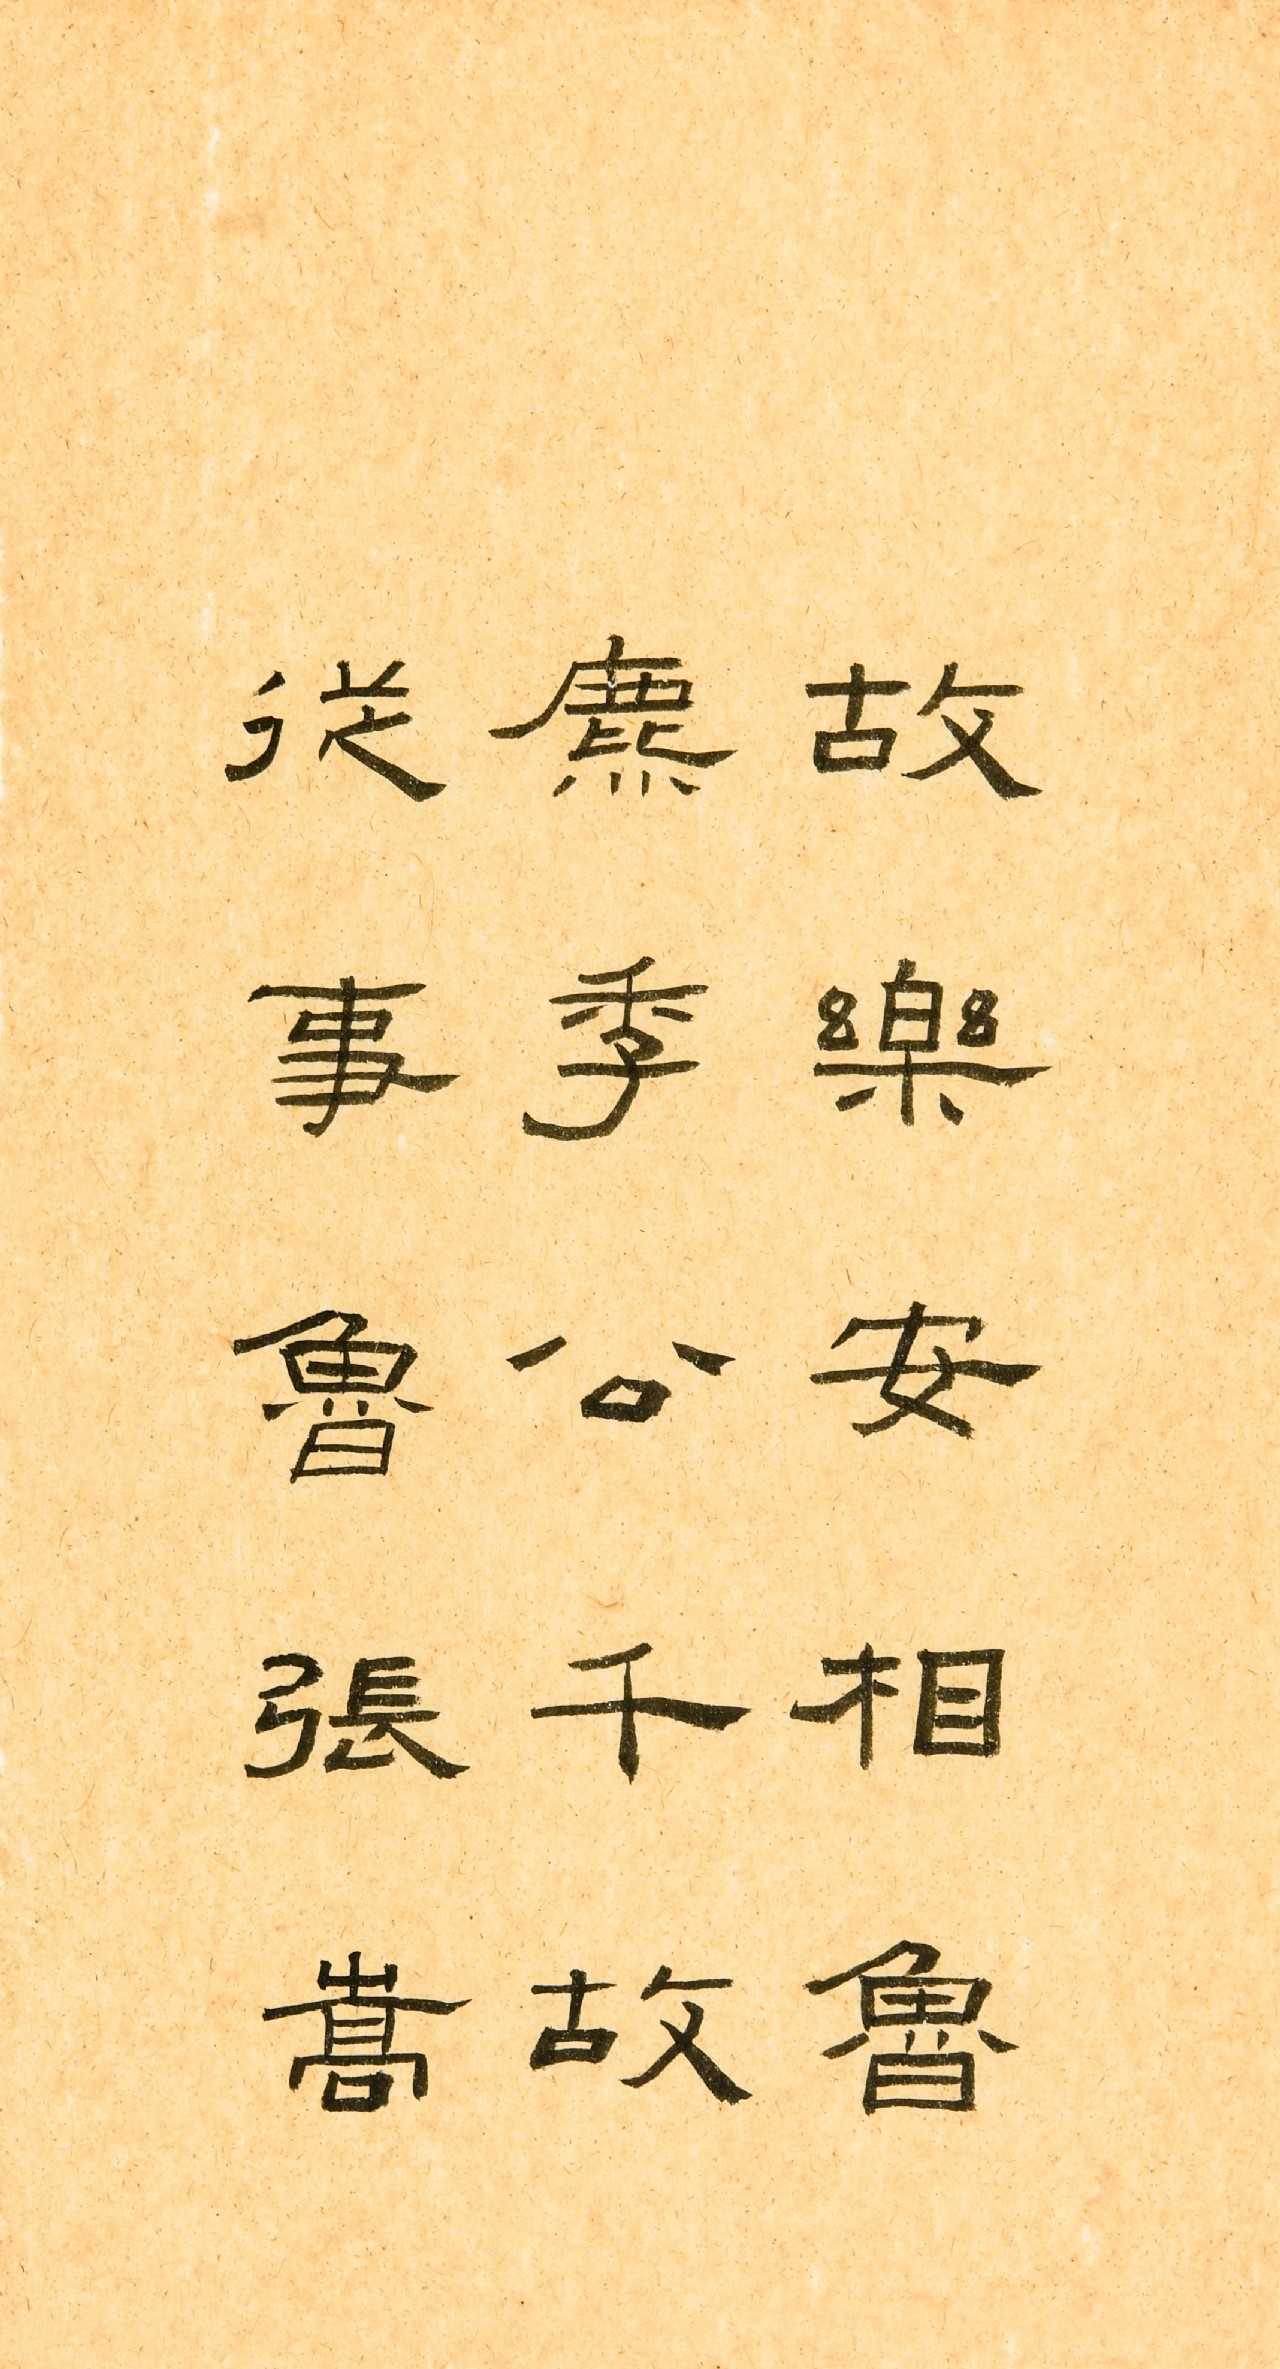 故樂安相魯
麃季公千故
從事魯張嵩